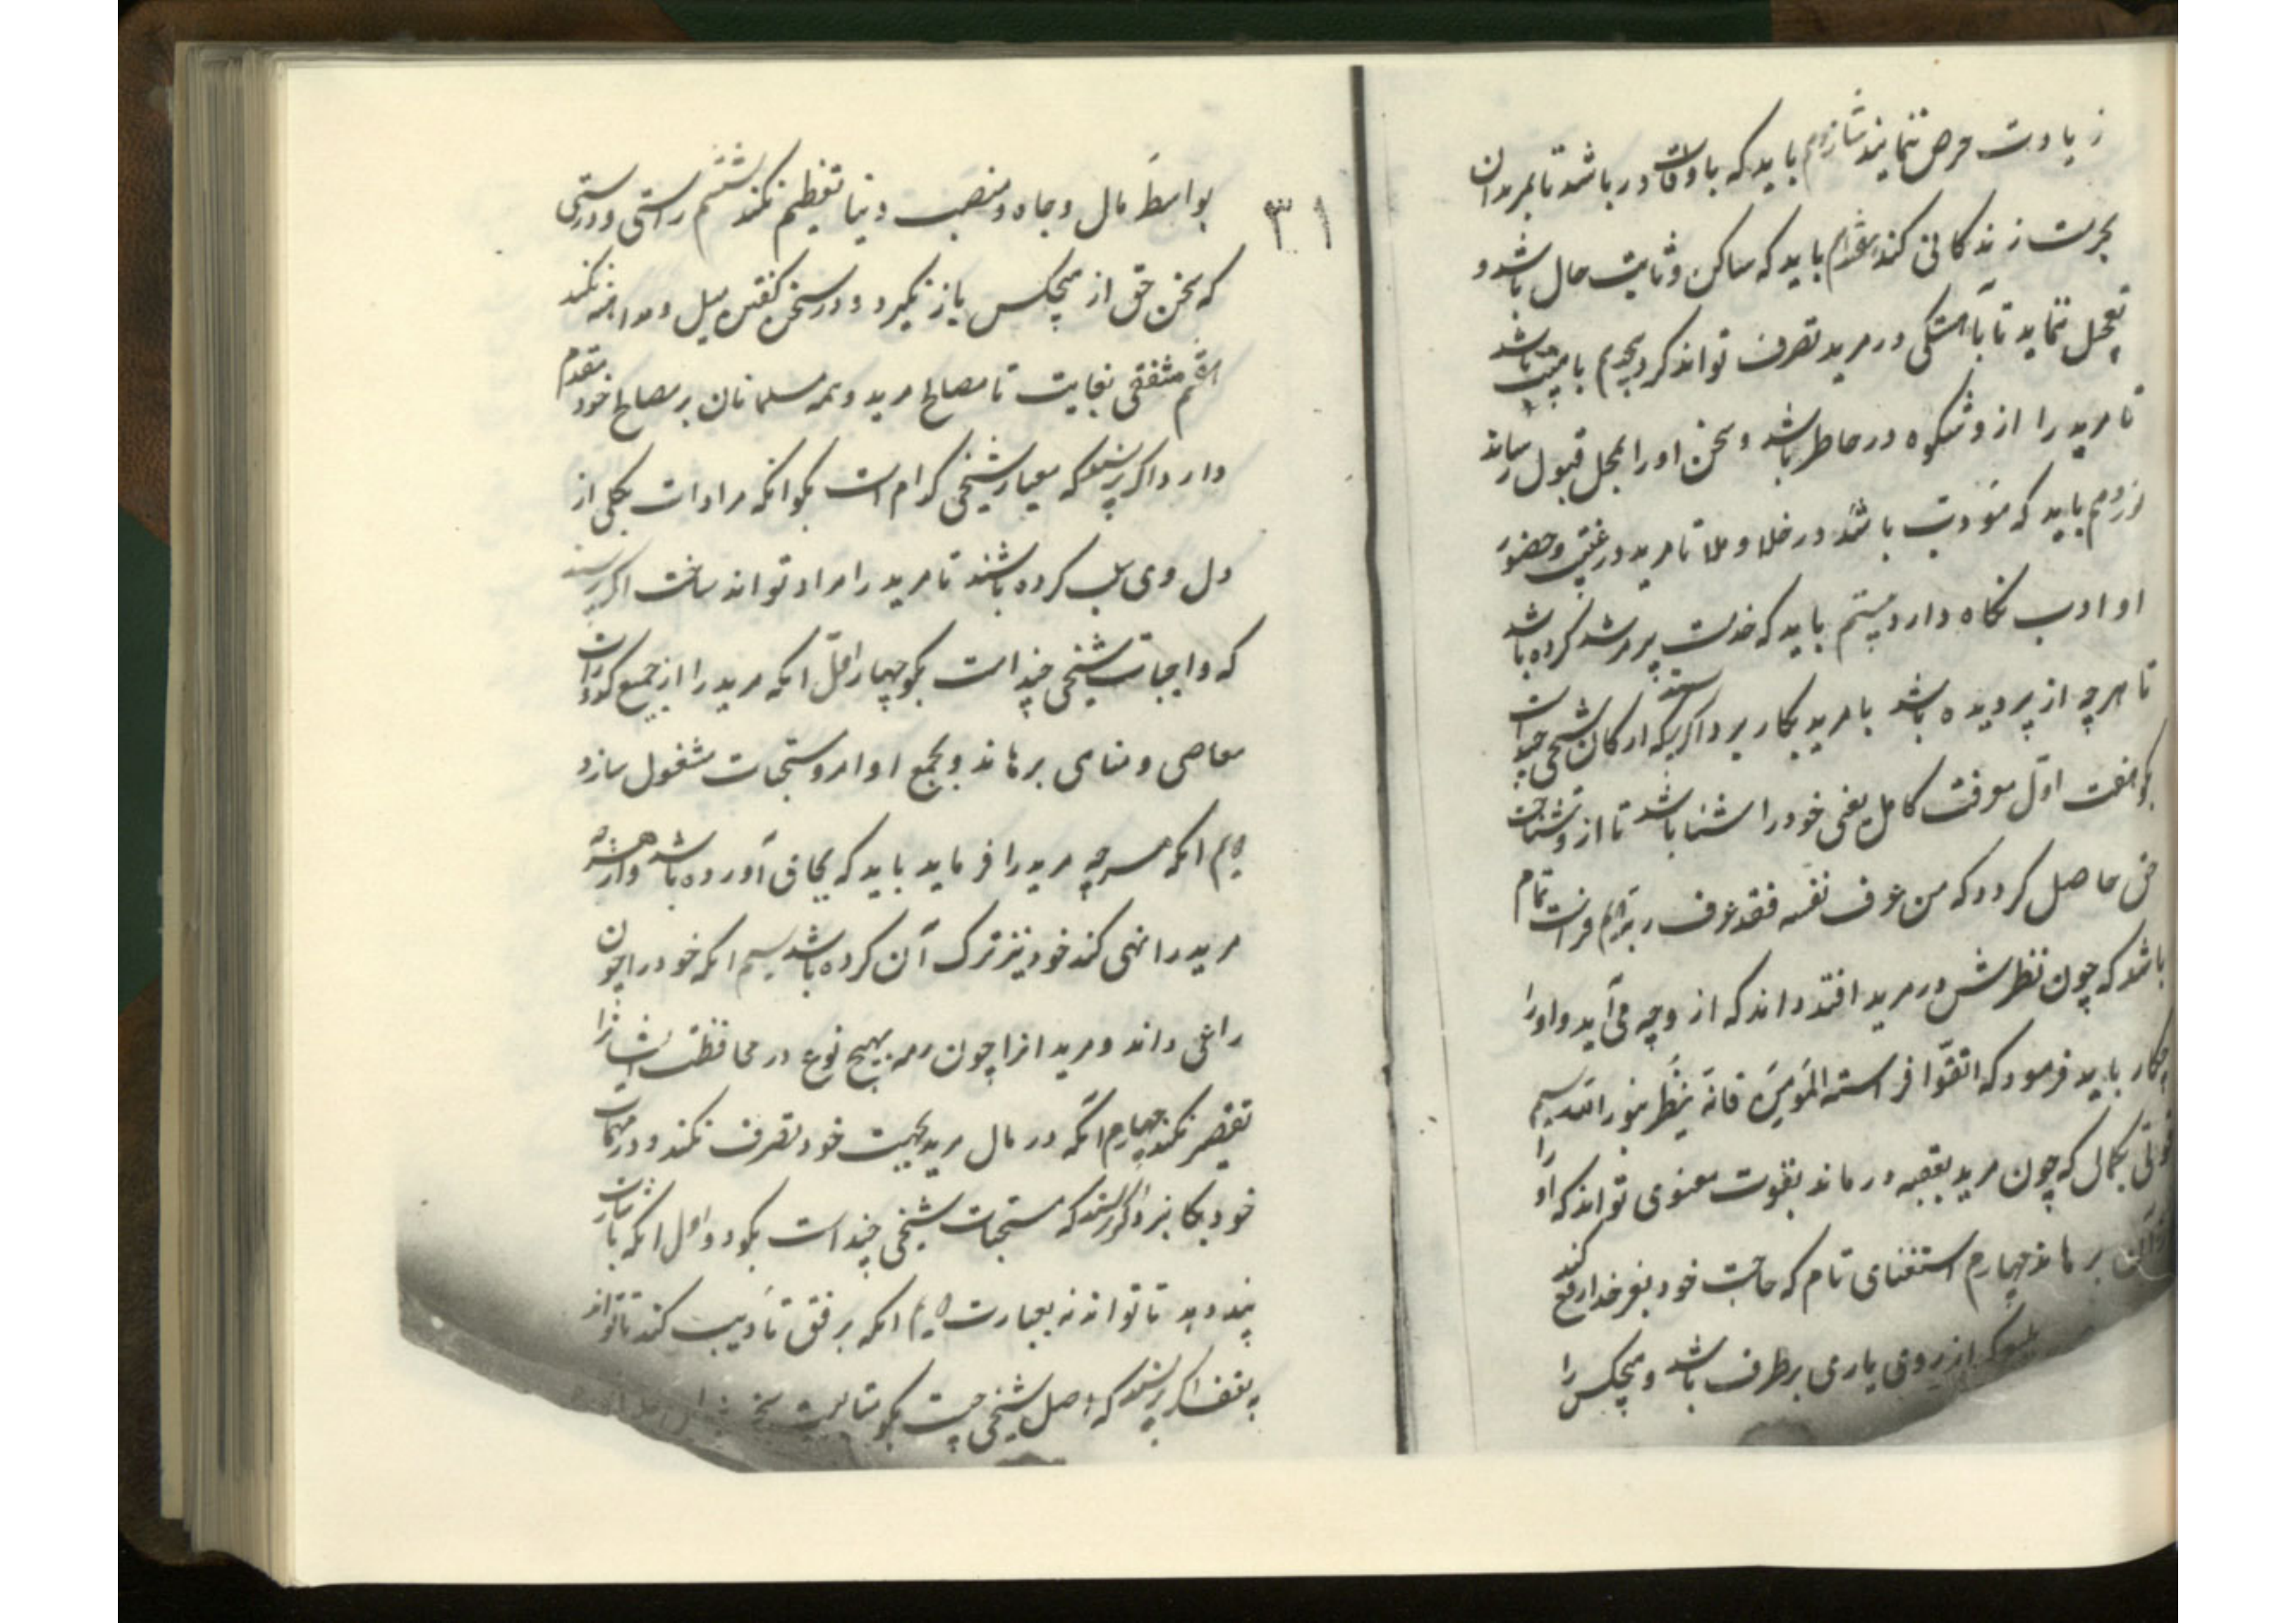 زیادت حرص ننماید شانزدهم باید که با وقار باشد تا مریدان
بحرمت زندگانی کند هفدهم باید که ساکن و ثابت حال باشد و
تعجیل ننماید تا بآهستگی در مرید تصرف تواند کرد هجدهم با هیبت باشد
تا مرید را از و شکوه در خاطر باشد و سخن او را بمحل قبول رساند
نوزدهم باید که مؤدب باشد در خلا و ملا تا مرید در غیبت و حضور
او ادب نگاه دارد بیستم باید که خدمت پیر مرشد کرده باشد
تا هرچه از پیر دیده باشد با مرید بکار برد اگر پرسند که ارکان شیخی چند است
بگو هفت اول معرفت کامل یعنی خود را شناسا باشد تا از و شناخت
حق حاصل گردد که من عرف نفسه فقد عرف ربه دویم فراست تمام
باشد که چون نظرش در مرید افتد داند که از و چه می آید و او را
چکار باید فرمود که اتقوا فراسة المؤمن فانه ینظر بنور الله سیم
قوتی بکمال که چون مرید بعقبه درماند بقوت معنوی تواند که او را
از آن برهاند چهارم استغنای تام که حاجت خود بغیر خدا رفع کند
که از روی یاری برطرف باشد و هیچکس را
۳۱
بواسطه مال و جاه و منصب دنیا تعظیم نکند ششم راستی و درستی
که سخن حق از هیچکس باز نگیرد و در سخن گفتن میل و مداهنه نکند
هفتم مشفقی بغایت تا مصالح مرید و همه مسلمانان بر مصالح خود مقدم
دارد اگر پرسند که معیار شیخی کدام است بگو انکه مرادات بکلی از
دل وی سلب کرده باشند تا مرید را مراد تواند ساخت اگر پرسند
که واجبات شیخی چند است بگو چهار اول انکه مرید را از جمیع کدورات
معاصی و مناهی برهاند و بجمیع اوامر و مستحبات مشغول سازد
دویم انکه هرچه مرید را فرماید باید که بجای آورده باشد و از هرچه
مرید را نهی کند خود نیز ترک آن کرده باشد سیم انکه خود را چون
راعی داند و مریدانرا چون رمه بهیچ نوع در محافظت ایشانرا
تقصیر نکند چهارم انکه در مال مرید بجهت خود تصرف نکند و در مهمات
خود بکار نبرد اگر پرسند که مستحبات شیخی چند است بگو دو اول انکه باشارت
پند دهد تا تواند نه بعبارت دویم انکه برفق تأدیب کند تا تواند
نه بعنف اگر پرسند که اصل شیخی چیست بگو متابعت